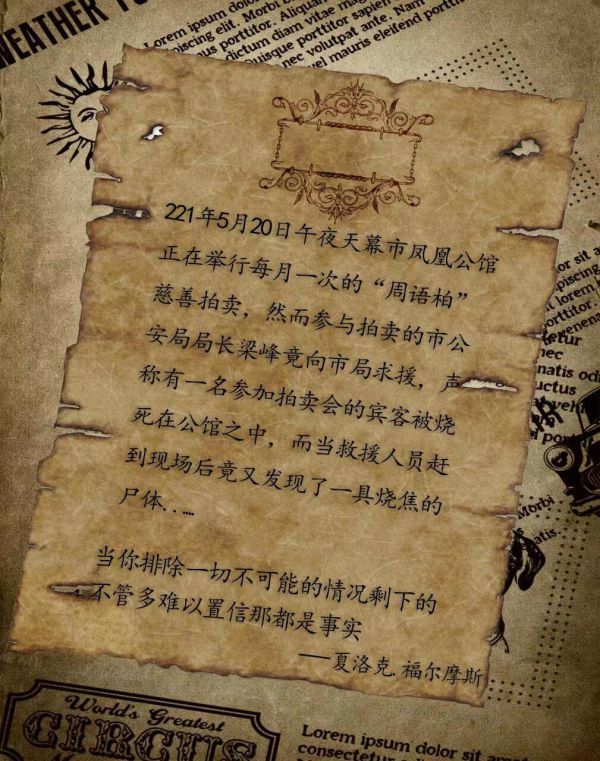 WEATHER TO
Lorem ipsum dolor
piscing elit. Morbi
porttitor. Aliquam
dictum diam vitae mag
Quisque porttitor sapien
nec volutpat ante. Nam
vel mauris eleifend port
221年5月20日午夜天幕市凤凰公馆
正在举行每月一次的“周语柏”
慈善拍卖，然而参与拍卖的市公
安局局长梁峰竟向市局求援，声
称有一名参加拍卖会的宾客被烧
死在公馆之中，而当救援人员赶
到现场后竟又发现了一具烧焦的
尸体.……
当你排除一切不可能的情况剩下的
不管多难以置信那都是事实
——夏洛克.福尔摩斯
or sit a
piscing
lorem
porttitor.
nec
natis odi
uctus
Morbi
atis.
World's Greatest
CIRCUS
Lorem ipsum dolor sit a
consectetur